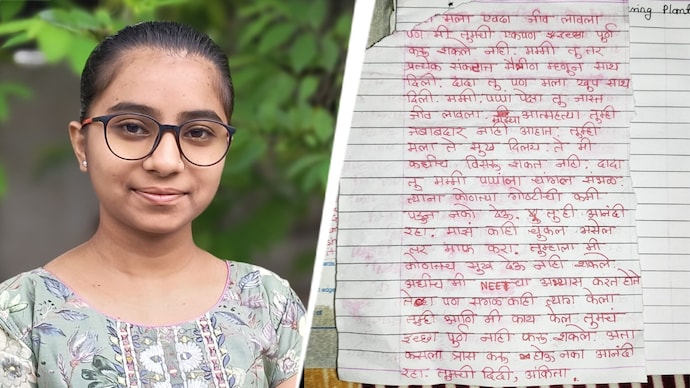 ning Planf
मला एवढा जीव लावला
पण मी तुमची एकपण इच्छा पुर्ण
करू शकले नाही. मम्मी तु तर
प्रत्येक संकटात मैत्रीण म्हणुन साथ
दिली. दादा तु पण मला खुप साथ
दिली. मम्मी. पप्पा पेक्षा तु जास्त
जीव लावला. आत्महत्या तुम्ही
जबाबदार नाही आहात. तुम्ही
मला ते सुख दिलय. ते मी
कधीच विसरू शकत नाही. दादा
तु मम्मी पप्पांना चांगलं सभळ.
त्यांना कोठल्या गोष्टीची कमी
पडुन नको देऊ. तुम्ही आनंदी
रहा. माझं काही चुकलं असेल
तर माफ करा. तुम्हाला मी
कोठलच सुख देऊ नाही शकले.
अधीच मी NEETचा अभ्यास करत होते
तेव्हा पण सगळ काही त्याग केला
तुम्ही आणि मी काय केल तुमच
इच्छा पुर्ण नाही करू शकले. आता
कसला त्रास करू घेऊ नका आनंदी
रहा. तुमची दिदी, अंकिता